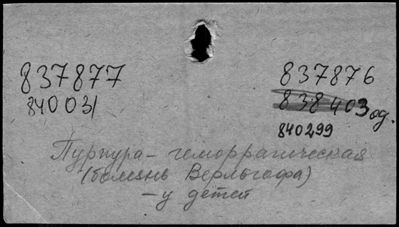 837877
840031
837876
838403 од.
840299
Пурпура - геморрагическая
(болезнь Верльгофа)
- у детей